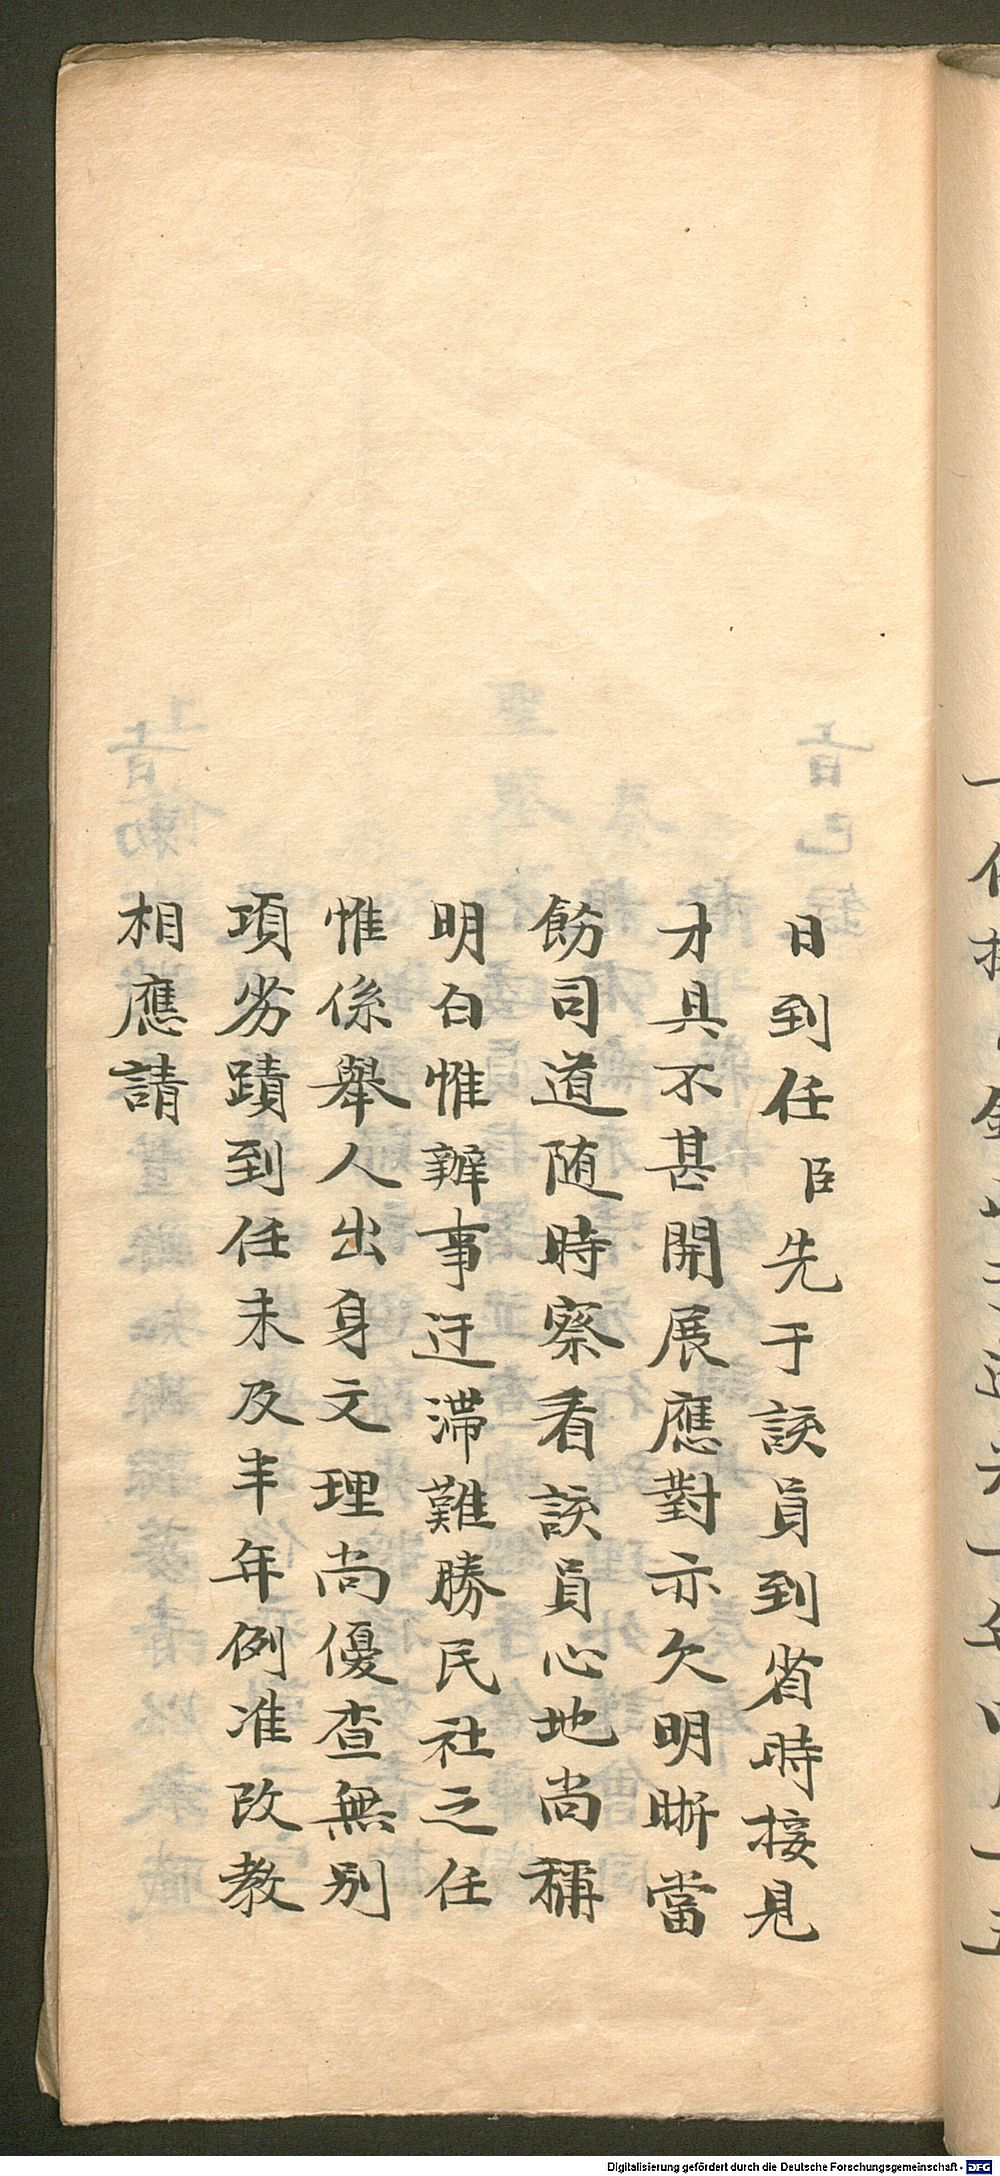 日到任臣先于該員到省時接見
才具不甚開展應對亦欠明晰當
飭司道随時察看該員心地尚稱
明白惟辦事迂滯難勝民社之任
惟係舉人出身文理尚優查無別
項劣蹟到任未及半年例准改教
相應請
Digitalisierung gefördert durch die Deutsche Forschungsgemeinschaft - DFG